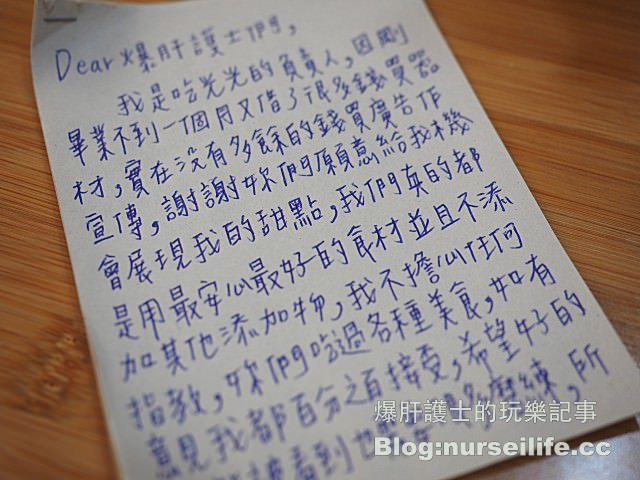 Dear 爆肝護士們,
我是吃光光的負責人,因剛
畢業不到一個月又借了很多錢買器
材,實在沒有多餘的錢買廣告作
宣傳,謝謝妳們願意給我機
會展現我的甜點,我們真的都
是用最安心最好的食材並且不添
加其他添加物,我不擔心任何
指教,妳們吃過各種美食,如有
意見我都百分之百接受,希望好的
被看到 多磨練,所
爆肝護士的玩樂記事
Blog:nurseilife.cc